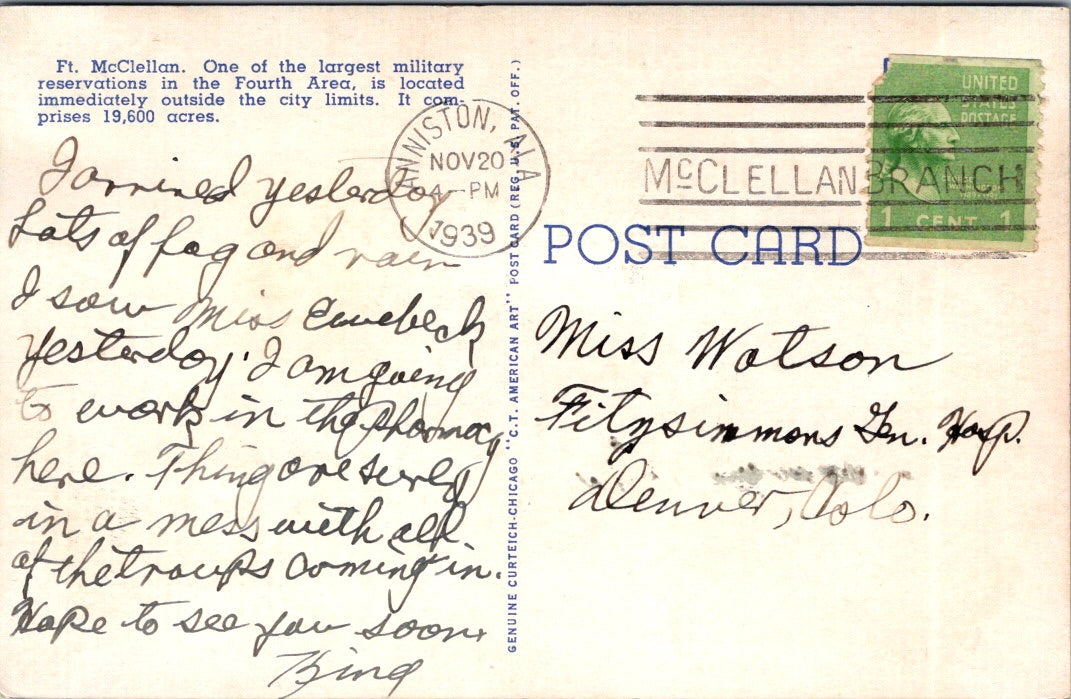 Ft. McClellan. One of the largest military
reservations in the Fourth Area, is located
immediately outside the city limits. It com-
prises 19,600 acres.
I arrived yesterday
Lots of fog and rain
I saw Miss
yesterday. I am going
to work in the Pharmacy
here. Things are surely
in a mess with all
of the troups coming in.
Hope to see you soon.
King
ANNISTON, ALA
NOV 20
4 - PM
1939
GENUINE CURTEICH-CHICAGO "C.T. AMERICAN ART" POST CARD (REG. U.S. PAT. OFF.)
McCLELLAN BRANCH
UNITED
STATES
POSTAGE
1 CENT 1
POST CARD
Miss Watson
Fitzsimmons Gen. Hosp.
Denver, Colo.